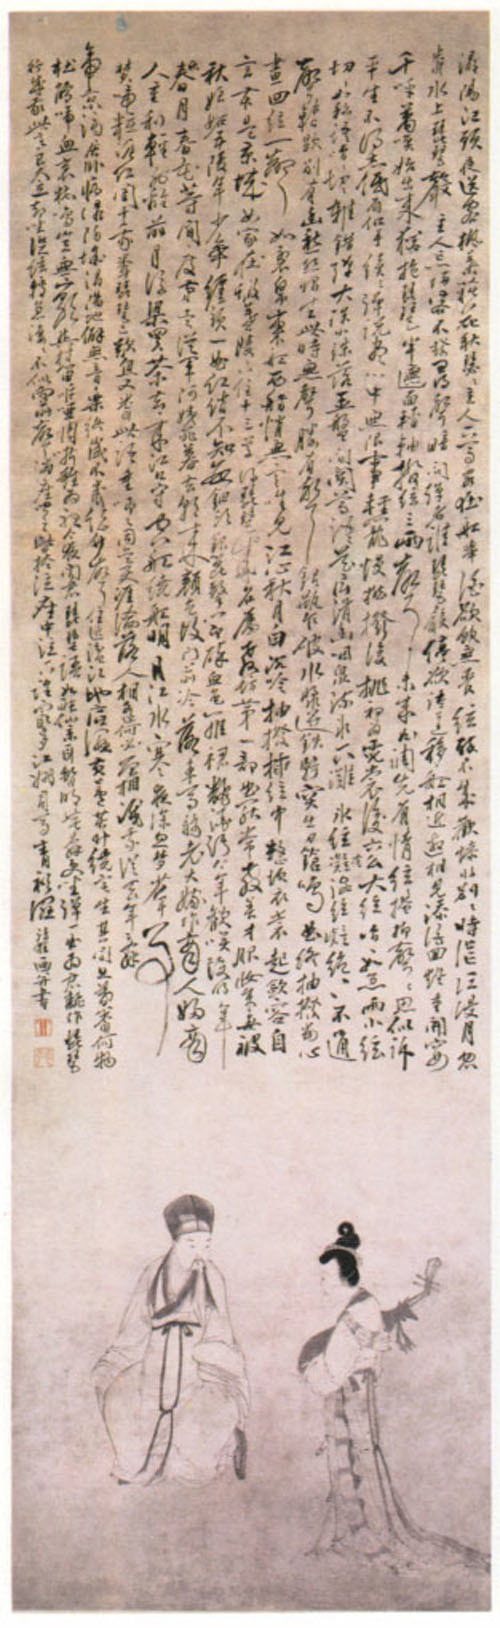 潯陽江頭夜送客楓葉荻花秋瑟瑟主人下馬客在船舉酒欲飲無管絃醉不成歡慘將別別時茫茫江浸月忽
聞水上琵琶聲主人忘歸客不發尋聲暗問彈者誰琵琶聲停欲語遲移船相近邀相見添酒回燈重開宴
千呼萬喚始出來猶抱琵琶半遮面轉軸撥絃三兩聲未成曲調先有情絃絃掩抑聲聲思似訴
平生不得志低眉信手續續彈說盡心中無限事輕攏慢撚撥復挑初為霓裳後六幺大絃嘈嘈如急雨小絃
切切如私語嘈嘈切切錯雜彈大珠小珠落玉盤間關鶯語花底滑幽咽泉流水下灘水泉冷澀絃凝絕凝絕不通
聲暫歇別有幽愁暗恨生此時無聲勝有聲銀瓶乍破水漿迸鐵騎突出刀鎗鳴曲終抽撥當心
畫四絃一聲如裂帛東船西舫悄無言唯見江心秋月白沉吟抽撥插絃中整頓衣裳起斂容自
言本是京城女家在蝦蟆陵下住十三學得琵琶成名屬教坊第一部曲罷常教善才服妝成每被
秋娘妒五陵年少爭纏頭一曲紅綃不知數鈿頭銀篦擊節碎血色羅裙翻酒污今年歡笑復明年
秋月春風等閒度弟走從軍阿姨死暮去朝來顏色故門前冷落車馬稀老大嫁作商人婦商
人重利輕別離前月浮梁買茶去去來江口守空船繞船明月江水寒夜深忽夢少年事
夢啼妝淚紅闌干我聞琵琶已歎息又聞此語重唧唧同是天涯淪落人相逢何必曾相識我從去年辭
帝京謫居臥病潯陽城潯陽地僻無音樂終歲不聞絲竹聲住近湓江地低濕黃蘆苦竹繞宅生其間旦暮聞何物
杜鵑啼血猿哀鳴豈無山歌與村笛嘔啞嘲哳難為聽今夜聞君琵琶語如聽仙樂耳暫明莫辭更坐彈一曲為君翻作琵琶
行感我此言良久立却坐促絃絃轉急淒淒不似向前聲滿座聞之皆掩泣座中泣下誰最多江州司馬青衫濕